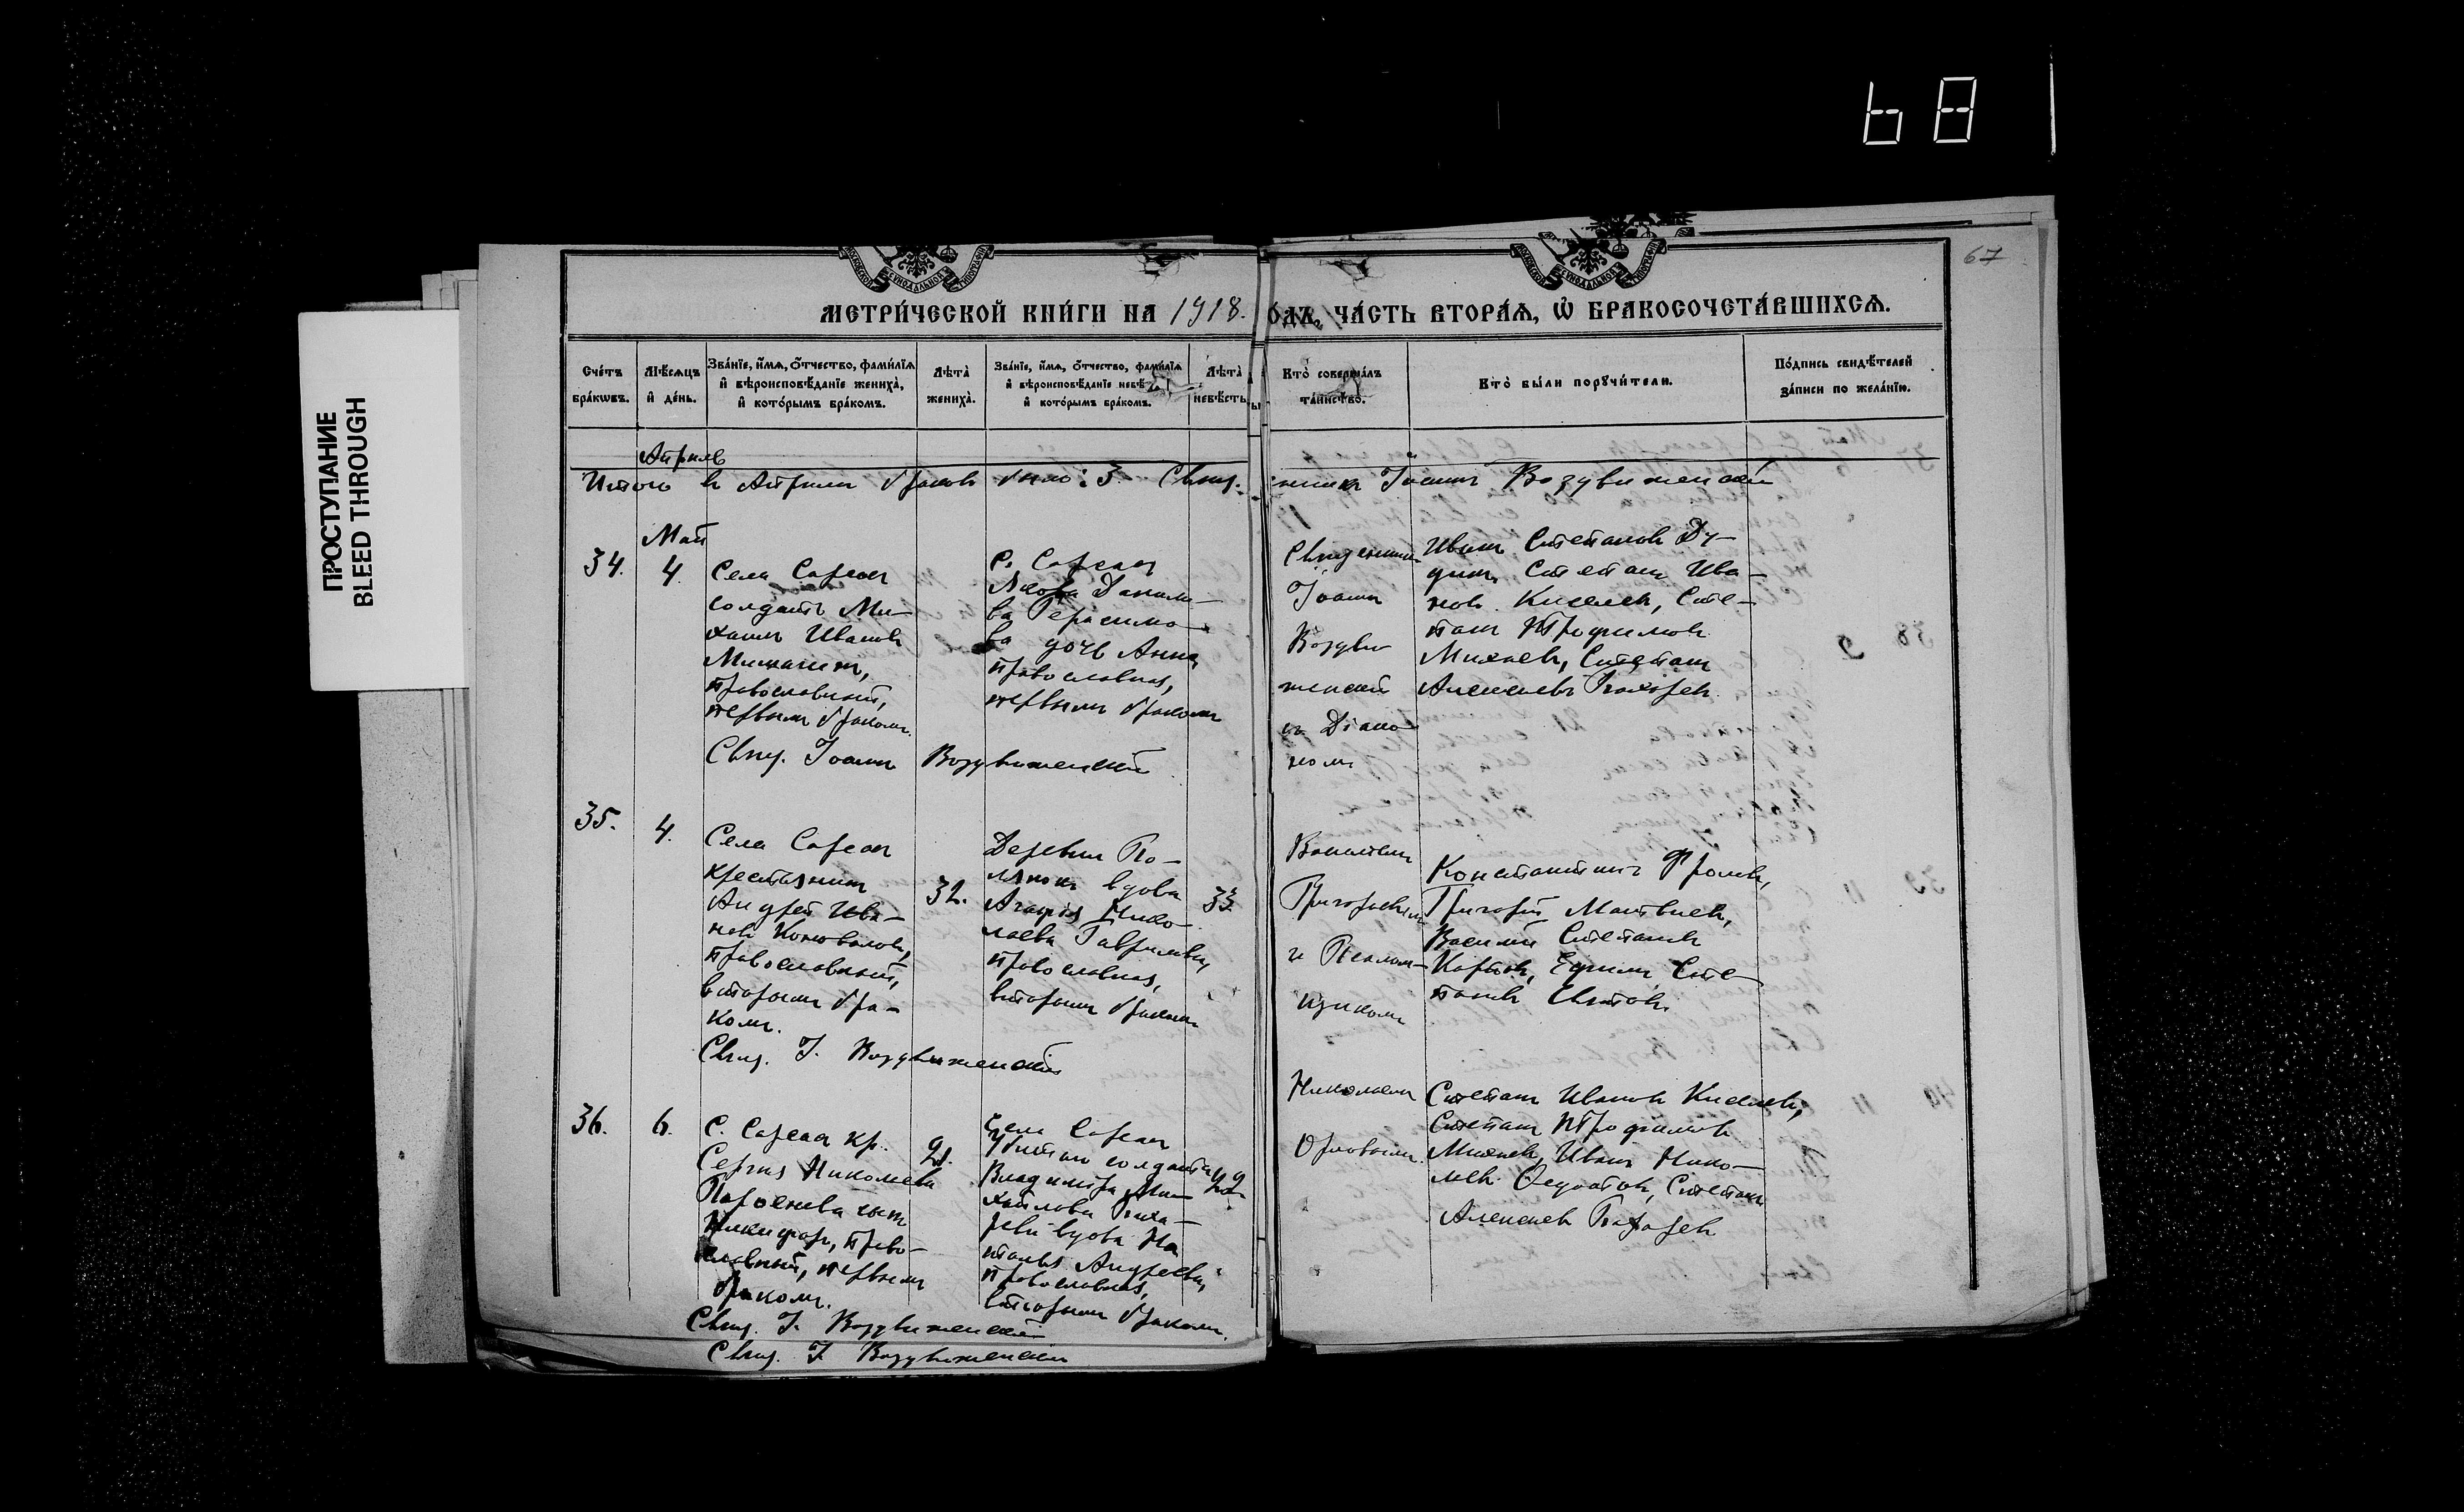 ПРОСТУПАНИЕ
BLEED THROUGH
67
МЕТРИ́ЧЕСКОЙ КНИ́ГИ НА 1918. ОДЪ, ЧА́СТЬ ВТОРА́Я, Ѡ БРАКОСОЧЕТА́ВШИХСЯ.
Сче́тъ бра́кѡвъ.
Мѣ́сяцъ и де́нь.
Зва́нїе, и́мя, о́тчество, фами́лїя и вѣроисповѣ́данїе жениха̀, и кото́рымъ бра́комъ.
Лѣта̀ жениха̀.
Зва́нїе, и́мя, о́тчество, фами́лїя и вѣроисповѣ́данїе невѣ и кото́рымъ бра́комъ.
Лѣта̀ невѣ́сты
Кто̀ соверша́лъ та́инство.
Кто̀ бы́ли порꙋчи́тели.
По́дпись свидѣ́телей за́писи по жела́нїю.
Апрель
Итого в Апреле браков было: 3. Свящ.
енник Іоанн Воздвиженский
Май
34.
4.
Села Сареи
солдатъ Ми-
хаил Иванов
православный,
первым браком.
С.
Якова Данило-
ва Герасимо-
ва дочь Анна,
православная,
первым браком
Священник
Іоанн
Воздви-
женский
съ Діако-
ном
Иван Степанов Ду-
дин, Степан Ива-
нов Киселев, Сте-
пан Трофимов
Михеев, Степан
Алексеев
Свящ. Іоанн Воздвиженский
35.
4.
Села
крестьянин
Андрей Ива-
нов Коновалов,
православный,
вторым бра-
ком.
32.
Деревни По-
лянок вдова
Агафія Нико-
лаева Гаврилова,
православная,
вторым браком
33.
Василием
Григорьевым
и Псалом-
щиком
Константин Фролов,
Григорий Матвеев,
Василий Степанов
Карпов, Ефим Сте-
панов
Свящ. І. Воздвиженский
36.
6.
С. кр.
Сергия Николаева
Парфенова сын
Никифор, право-
славный, первым
браком.
21.
Села
Убитого солдата
Владиміра Ми-
хайлова
вдова На
талья Андреева,
православная,
вторым браком.
22
Николаем
Орловым.
Степан Иванов Киселев,
Степан Трофимов
Михеев, Иван Нико-
лаев Федотов, Степан
Алексеев
Свящ. І. Воздвиженский
Свящ. І. Воздвиженский